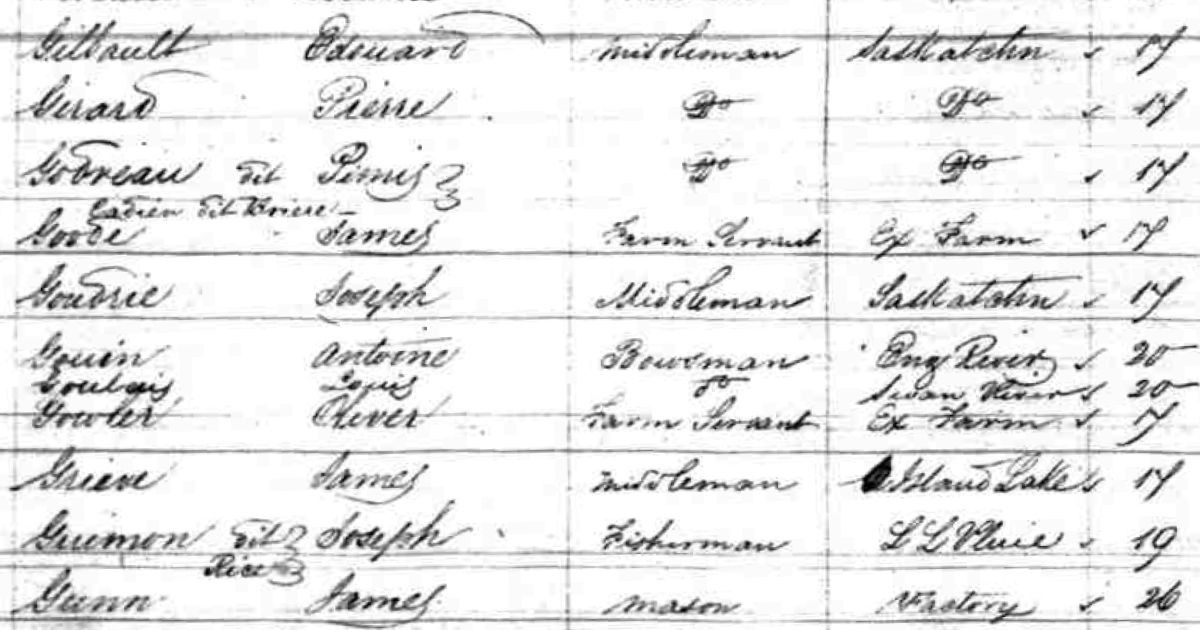 Gilbault Edouard Middleman Saskatchn 17
Girard Pierre Do Do 17
Godreau dit Do Do 17
Cadien dit Briere
Goode James Farm Servant Ex Farm 17
Goudrie Joseph Middleman Saskatchn 17
Gouin Antoine Bowsman Eng River 20
Goulais Louis do Swan River 20
Gowler Oliver Farm Servant Ex Farm 17
Grieve James Middleman Island Lake 17
Guimon dit Joseph Fisherman L L Pluie 19
Rice
Gunn James Mason Factory 26